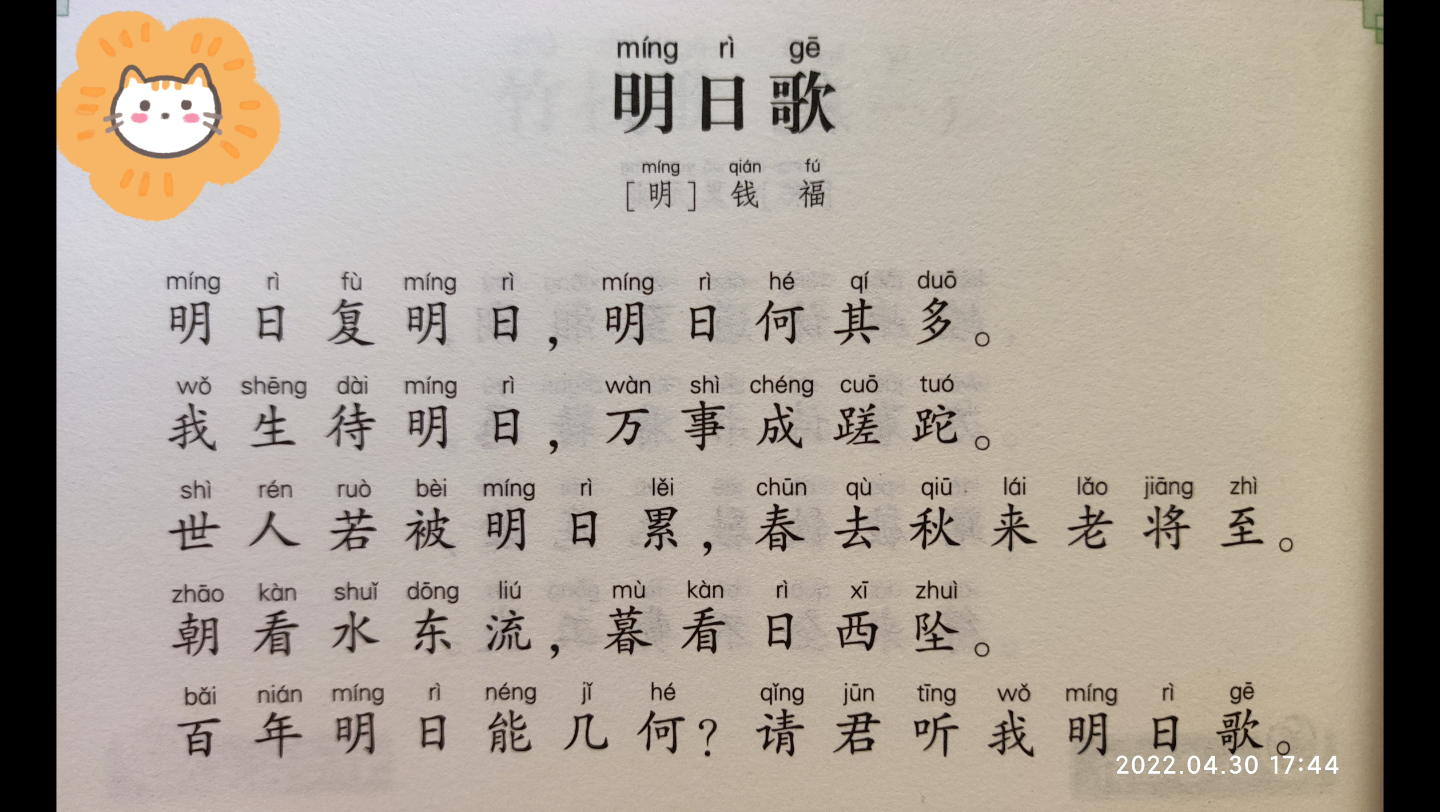 míng rì gē
明日歌
míng qián fú
［明］钱 福
míng rì fù míng rì míng rì hé qí duō
明日复明日，明日何其多。
wǒ shēng dài míng rì wàn shì chéng cuō tuó
我生待明日，万事成蹉跎。
shì rén ruò bèi míng rì lěi chūn qù qiū lái lǎo jiāng zhì
世人若被明日累，春去秋来老将至。
zhāo kàn shuǐ dōng liú mù kàn rì xī zhuì
朝看水东流，暮看日西坠。
bǎi nián míng rì néng jǐ hé qǐng jūn tīng wǒ míng rì gē
百年明日能几何？请君听我明日歌。
2022.04.30 17:44